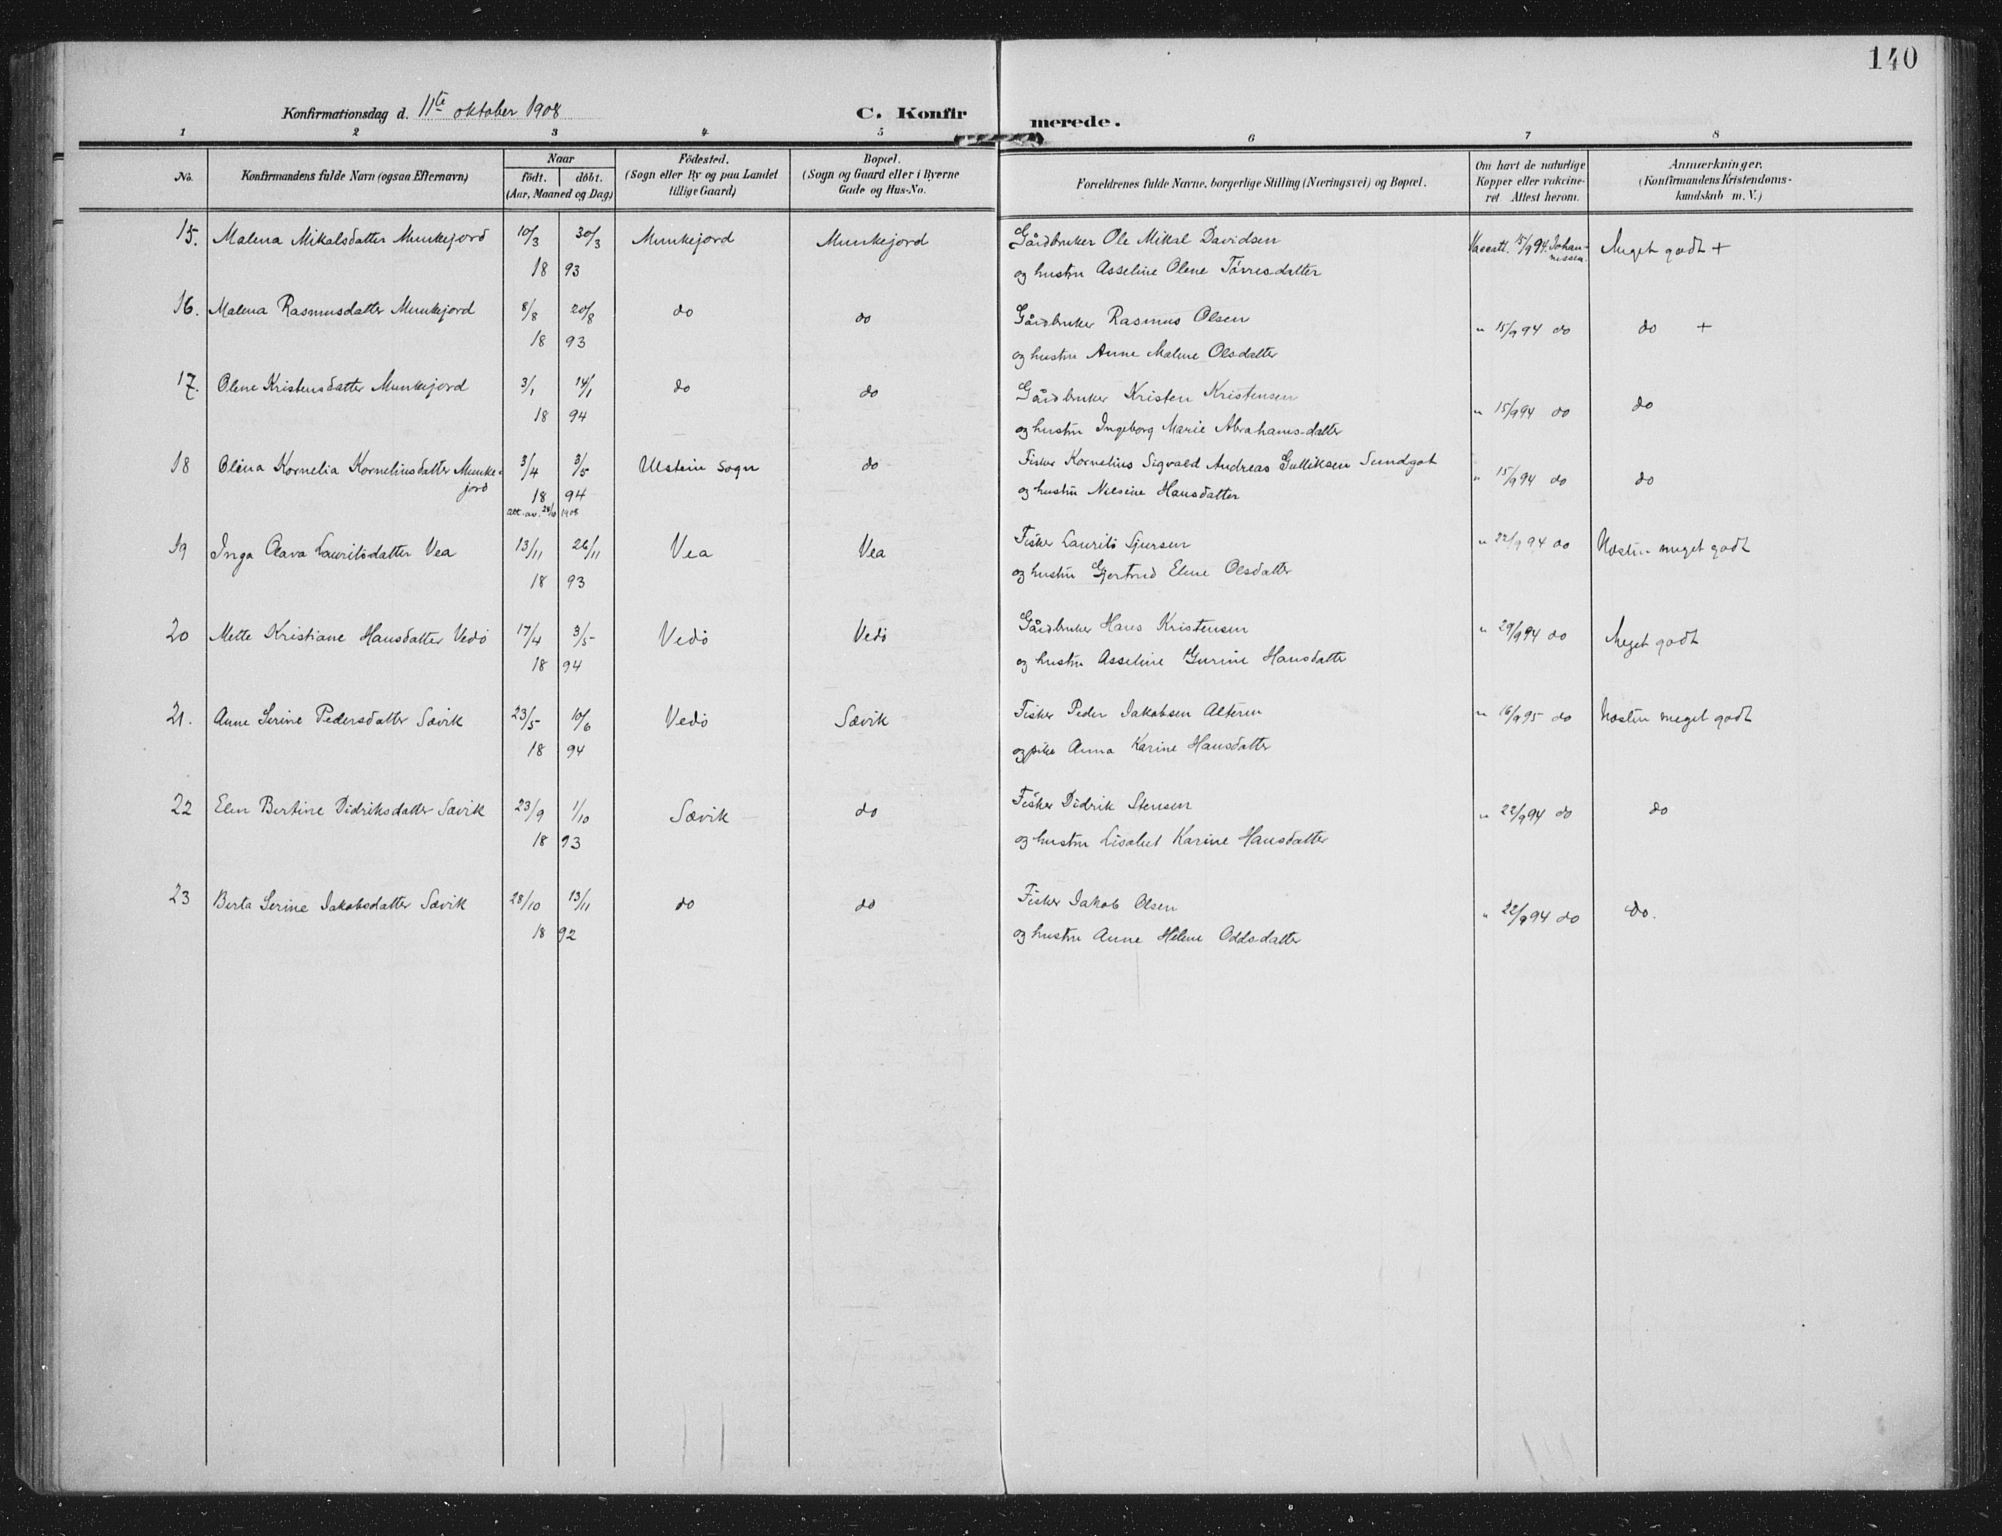 140
Konfirmationsdag d. 11te oktober 1908
C. Konfirmerede.
1 2 3 4 5 6 7 8
No. Konfirmandens fulde Navn (ogsaa Efternavn) Naar født. døbt. (Aar, Maaned og Dag) Fødested. (Sogn eller By og paa Landet tillige Gaard) Bopæl. (Sogn og Gaard eller i Byerne Gade og Hus-No. Forældrenes fulde Navne, borgerlige Stilling (Næringsvei) og Bopæl. Om havt de naturlige Kopper eller vakcineret Attest herom. Anmærkninger. (Konfirmandens Kristendomskundskab m. V.)
15. Malena Mikalsdatter Munkejord 10/3 30/3 Munkejord Munkejord Gårdbruker Ole Mikal Davidsen 15/9 94 Johannessen Meget godt +
18 93 og hustru Asseline Olene Tørresdatter
16. Malena Rasmusdatter Munkejord 8/8 20/8 do do Gårdbruker Rasmus Olsen " 15/9 94 do do +
18 93 og hustru Anne Malene Olsdatter
17. Olene Kristensdatter Munkejord 3/1 14/1 do do Gårdbruker Kristen Kristensen " 15/9 94 do do
18 94 og hustru Ingeborg Marie Abrahamsdatter
18 Olena Kornelia Korneliusdatter Munkejord 3/4 3/5 Utstein Sogn do Fisker Kornelius Sigvald Andreas Gulliksen Sundgot " 15/9 94 do do
18 94 og hustru Nilsine Hansdatter
att. av. 1908
19 Inga Olava Lauritsdatter Vea 13/11 26/11 Vea Vea Fisker Laurits Sjursen " 22/9 94 do Næsten meget godt
18 93 og hustru Gjertrud Elene Olsdatter
20 Mette Kristiane Hansdatter Vedø 17/4 3/5 Vedø Vedø Gårdbruker Hans Kristensen " 29/9 94 do Meget godt
18 94 og hustru Asseline Gurine Hansdatter
21. Anne Serine Pedersdatter Sævik 23/5 10/6 Vedø Sævik Fisker Peder Jakobsen Alteren " 16/9 95 do Næsten meget godt
18 94 og pike Anna Karine Hansdatter
22 Elen Bertine Didriksdatter Sævik 23/9 1/10 Sævik do Fisker Didrik Stensen " 22/9 94 do do
18 93 og hustru Lisabet Karine Hansdatter
23 Berta Serine Jakobsdatter Sævik 28/10 13/11 do do Fisker Jakob Olsen " 22/9 94 do do.
18 92 og hustru Anne Helene Oddsdatter